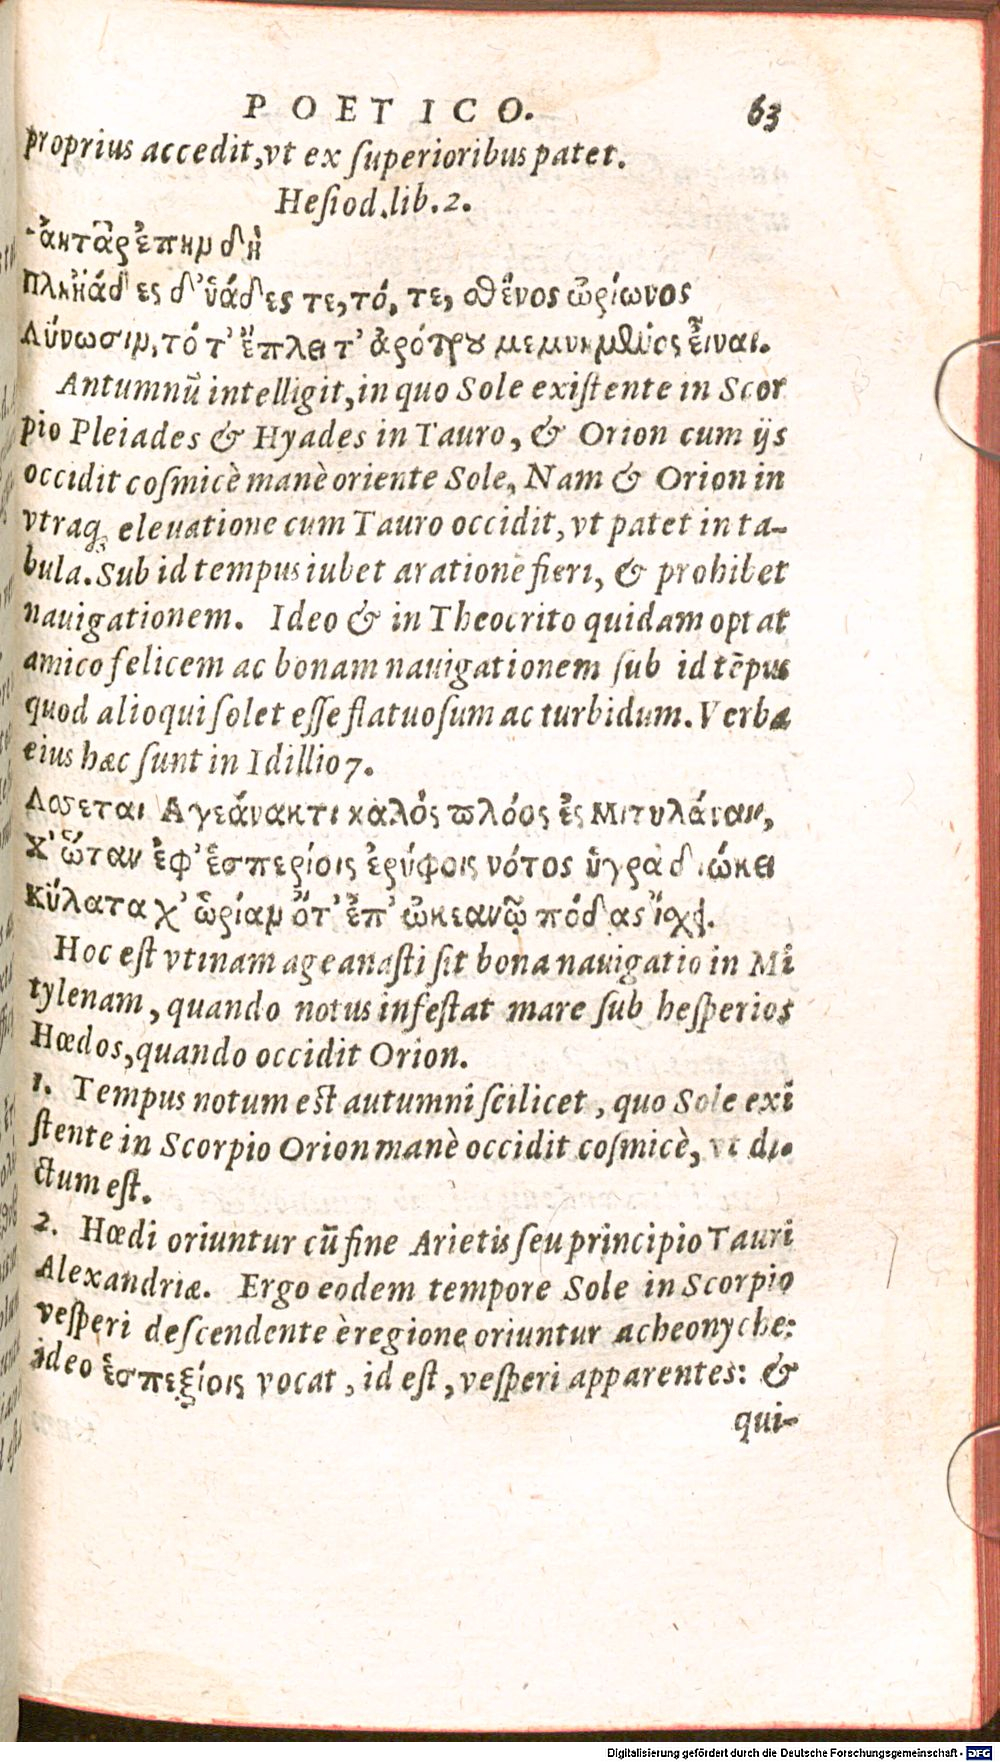 POETICO. 63
proprius accedit, vt ex superioribus patet.
Hesiod. lib. 2.
ἀκτἂρ ἐπημ δὴ
Πληϊάδες δ' ὑάδες τε, τό, τε, σθένος ὠρίωνος
Δύνωσιμ, τό τ' ἔπλει τ' ἀρότρου μεμνημένος εἶναι.
Antumnū intelligit, in quo Sole existente in Scor
pio Pleiades & Hyades in Tauro, & Orion cum ijs
occidit cosmicè manè oriente Sole, Nam & Orion in
vtraq; eleuatione cum Tauro occidit, vt patet in ta-
bula. Sub id tempus iubet arationē fieri, & prohibet
nauigationem. Ideo & in Theocrito quidam optat
amico felicem ac bonam nauigationem sub id tēpus
quod alioqui solet esse flatuosum ac turbidum. Verba
eius hæc sunt in Idillio 7.
Λοσεται Αγεάνακτι καλός πλόος ἐς Μιτυλάναν,
Χ' ὥταν ἐφ' ἑσπερίοις ἐρύφοις νότος ὑγρα διώκει
Κύλατα χ' ὡρίαμ ὅτ' ἐπ' ὠκεανῷ πόδας ἴσχει.
Hoc est vtinam ageanasti sit bona nauigatio in Mi
tylenam, quando notus infestat mare sub hesperios
Hœdos, quando occidit Orion.
1. Tempus notum est autumni scilicet, quo Sole exi
stente in Scorpio Orion manè occidit cosmicè, vt di-
ctum est.
2. Hœdi oriuntur cū fine Arietis seu principio Tauri
Alexandriæ. Ergo eodem tempore Sole in Scorpio
vesperi descendente è regione oriuntur acheonyche:
ideo ἑσπεξίοις vocat, id est, vesperi apparentes: &
qui-
Digitalisierung gefördert durch die Deutsche Forschungsgemeinschaft - DFG